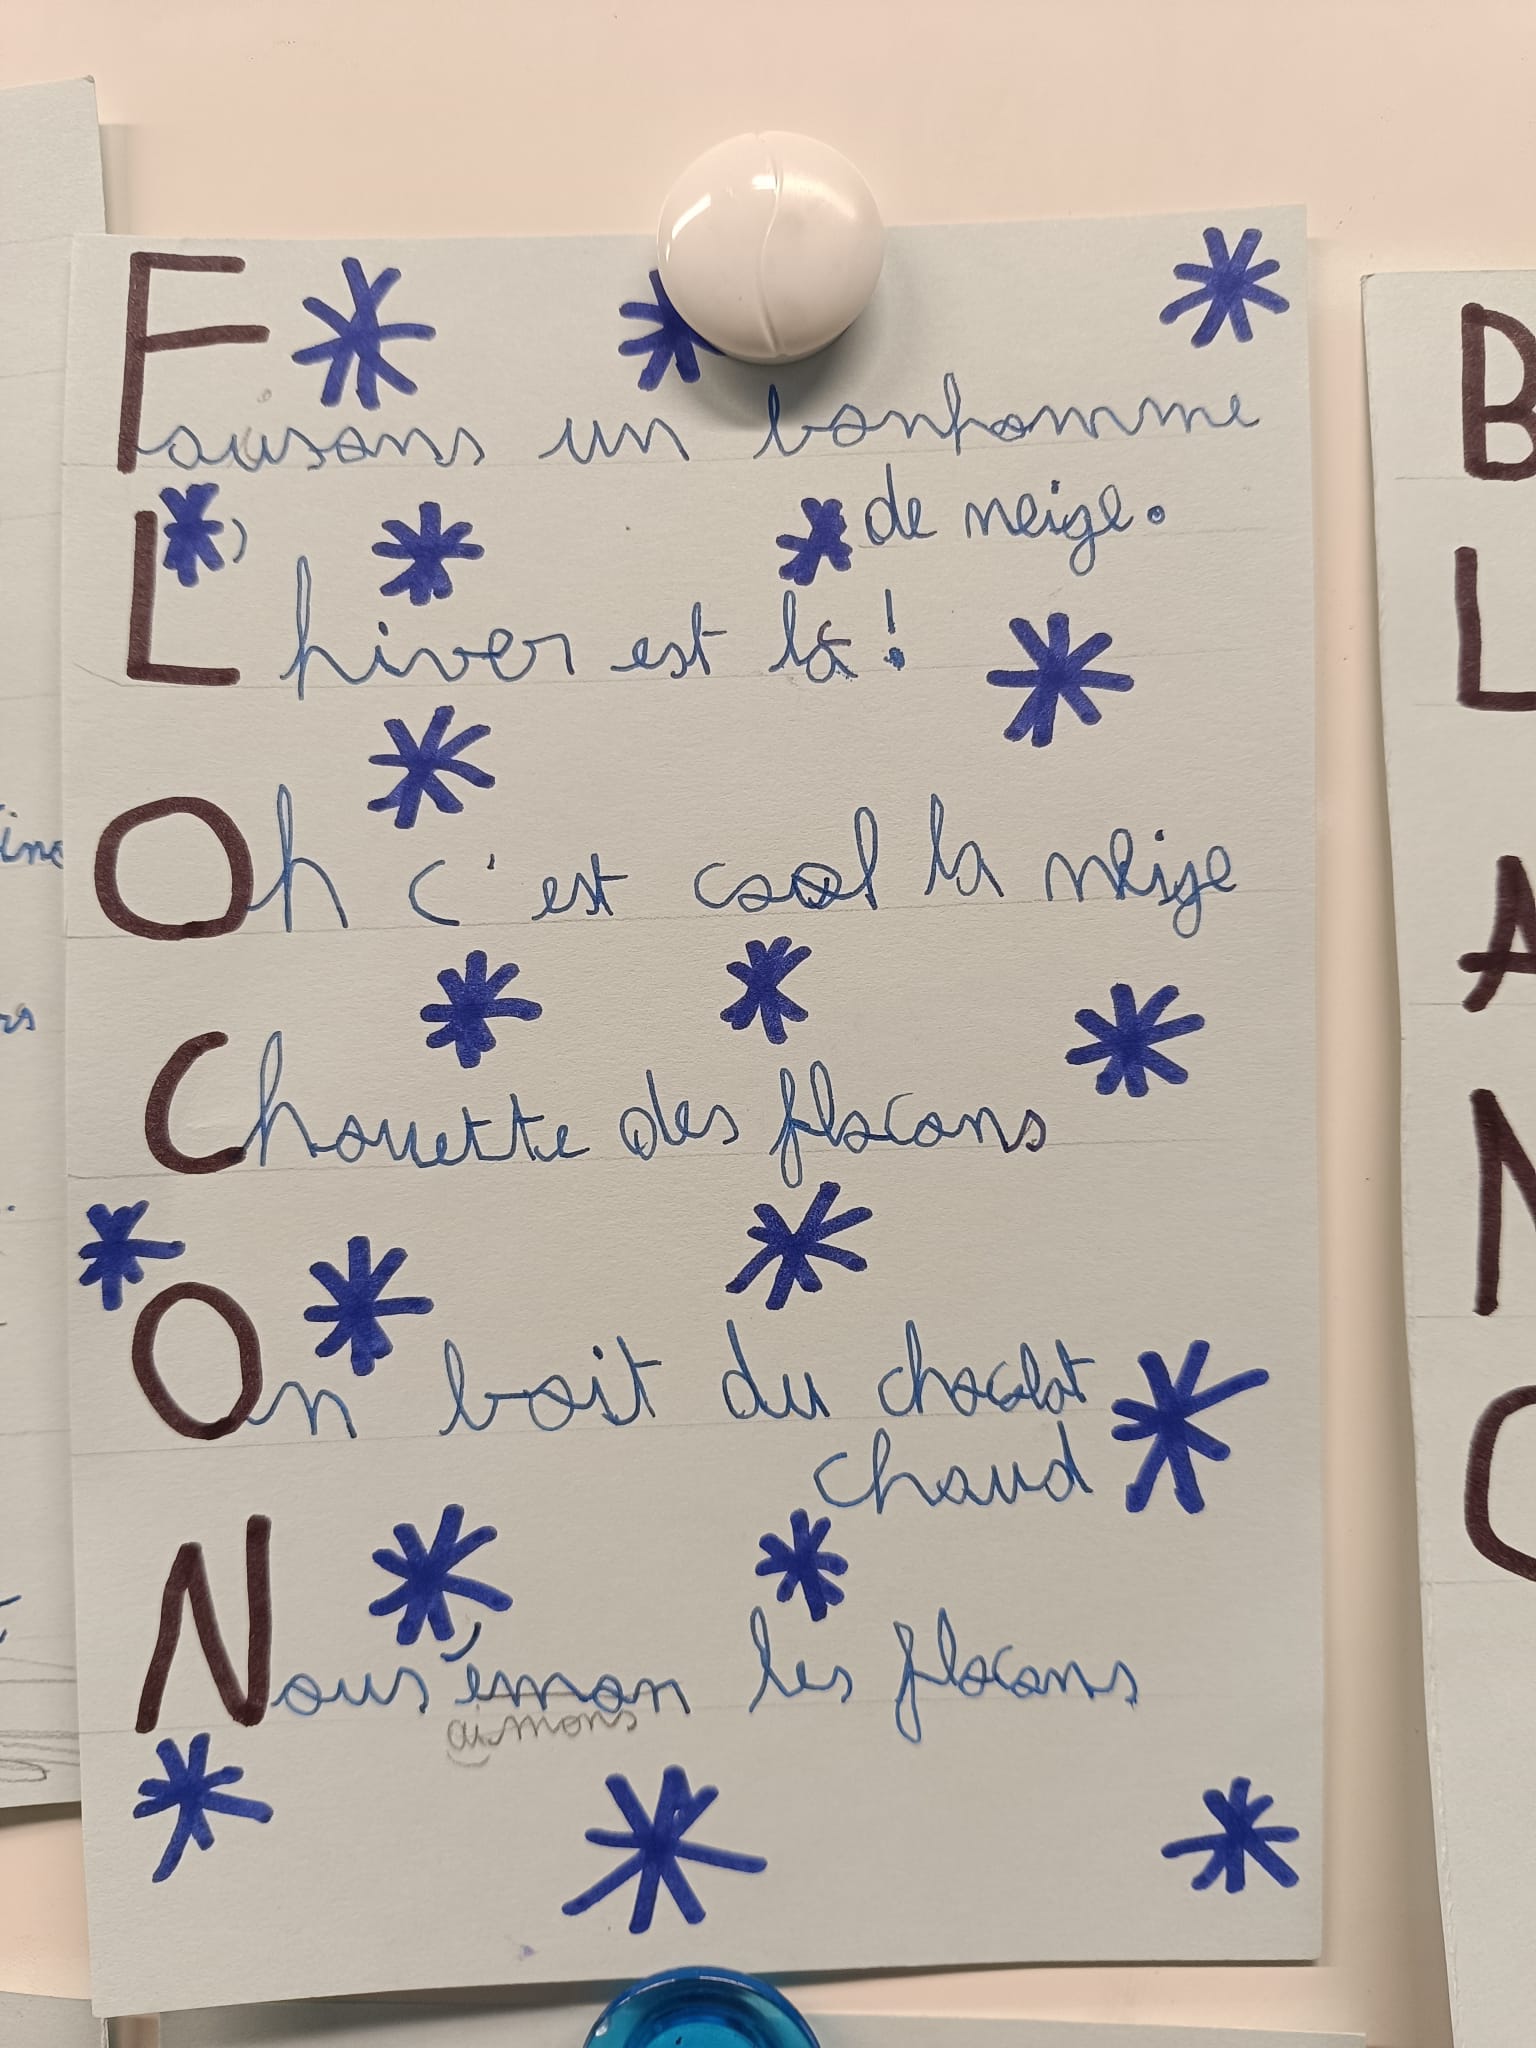 Faisons un bonhomme
de neige.
L'hiver est là !
Oh c'est cool la neige
Chouette des flocons
On boit du chocolat
chaud
Nous émon les flocons
aimons
B
L
A
N
C